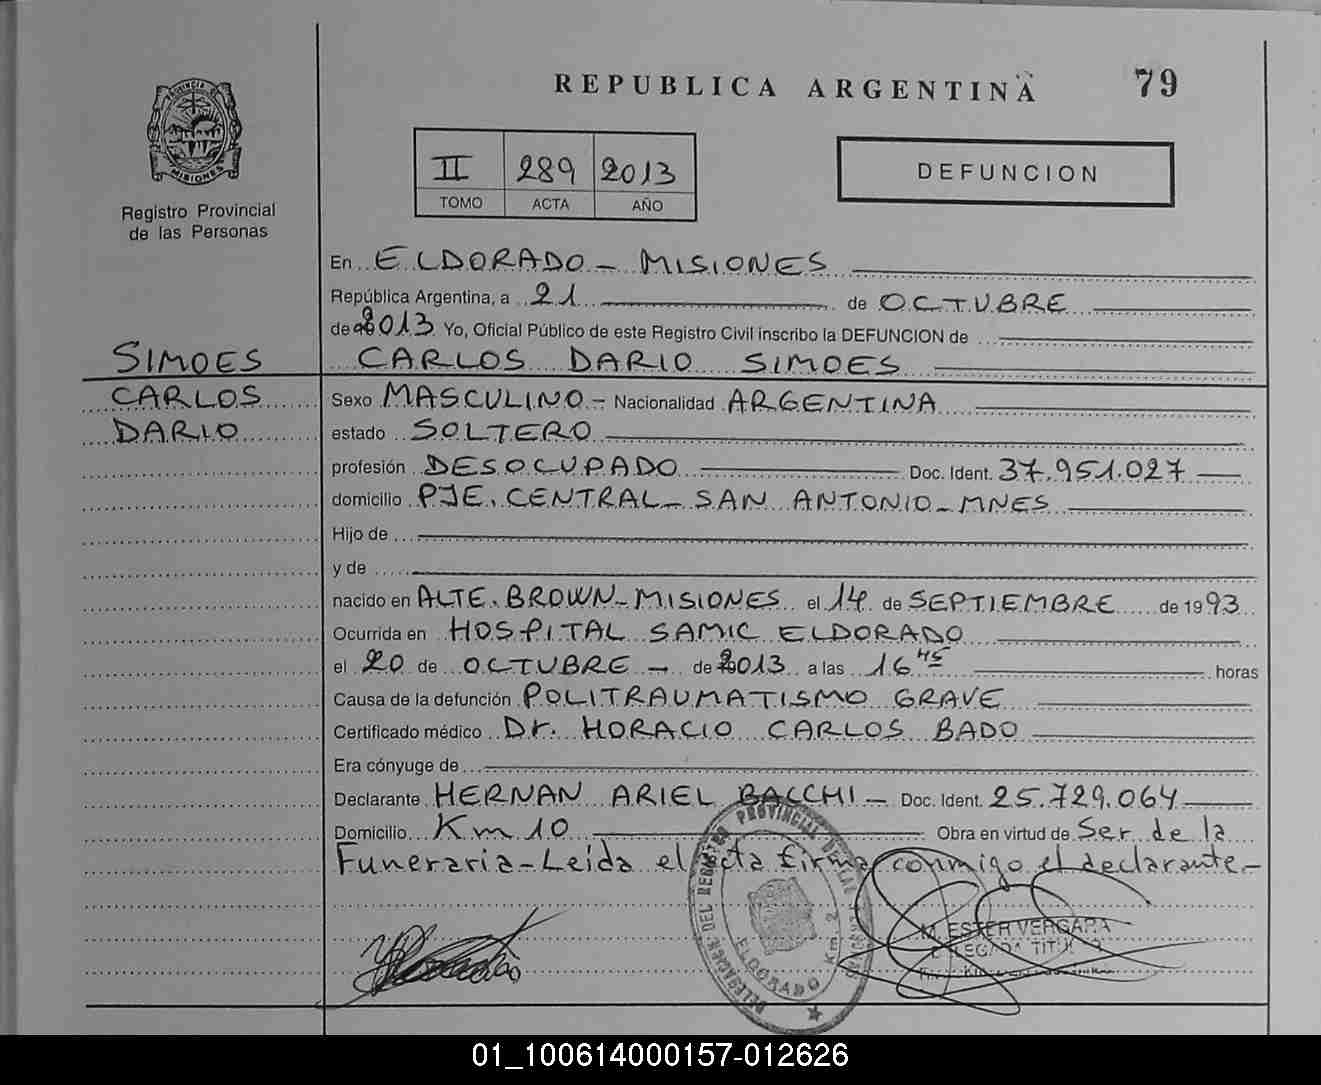 REPUBLICA ARGENTINA
79
PROVINCIA DE
MISIONES
Registro Provincial
de las Personas
II 289 2013
TOMO ACTA AÑO
DEFUNCION
En ELDORADO - MISIONES
República Argentina, a 21 de OCTUBRE
de 2013 Yo, Oficial Público de este Registro Civil inscribo la DEFUNCION de
SIMOES CARLOS DARIO SIMOES
CARLOS Sexo MASCULINO - Nacionalidad ARGENTINA
DARIO estado SOLTERO
profesión DESOCUPADO Doc. Ident. 37.951.027
domicilio PJE. CENTRAL - SAN ANTONIO - MNES
Hijo de
y de
nacido en ALTE. BROWN - MISIONES el 14 de SEPTIEMBRE de 1993
Ocurrida en HOSPITAL SAMIC ELDORADO
el 20 de OCTUBRE - de 2013 a las 16 45 horas
Causa de la defunción POLITRAUMATISMO GRAVE
Certificado médico Dr. HORACIO CARLOS BADO
Era cónyuge de
Declarante HERNAN ARIEL BACCHI - Doc. Ident. 25.729.064
Domicilio Km 10 Obra en virtud de Ser de la
Funeraria - Leída el acta firma conmigo el declarante -
DELEGACION DEL REGISTRO PROVINCIAL DE LAS
ELDORADO Km. 2
M. ESTER VERGARA
DELEGADA TITULAR
01_100614000157-012626